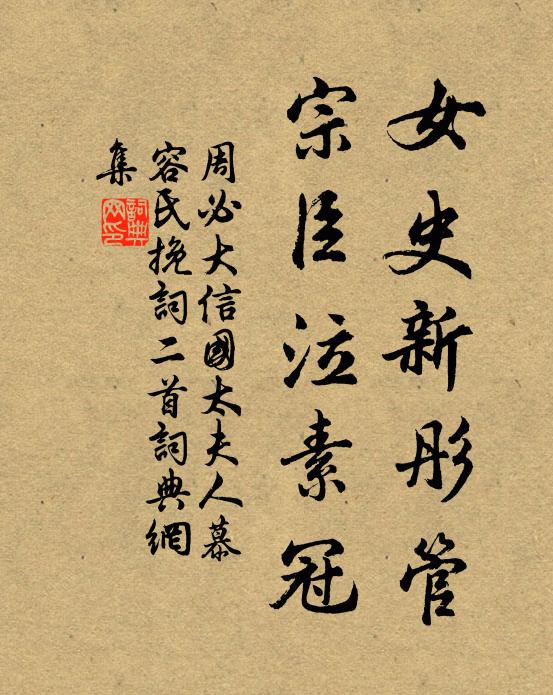 女史新彤管
宗臣泣素冠
周必大信國太夫人慕
容氏挽詞二首詞典網
集
詞典
网印